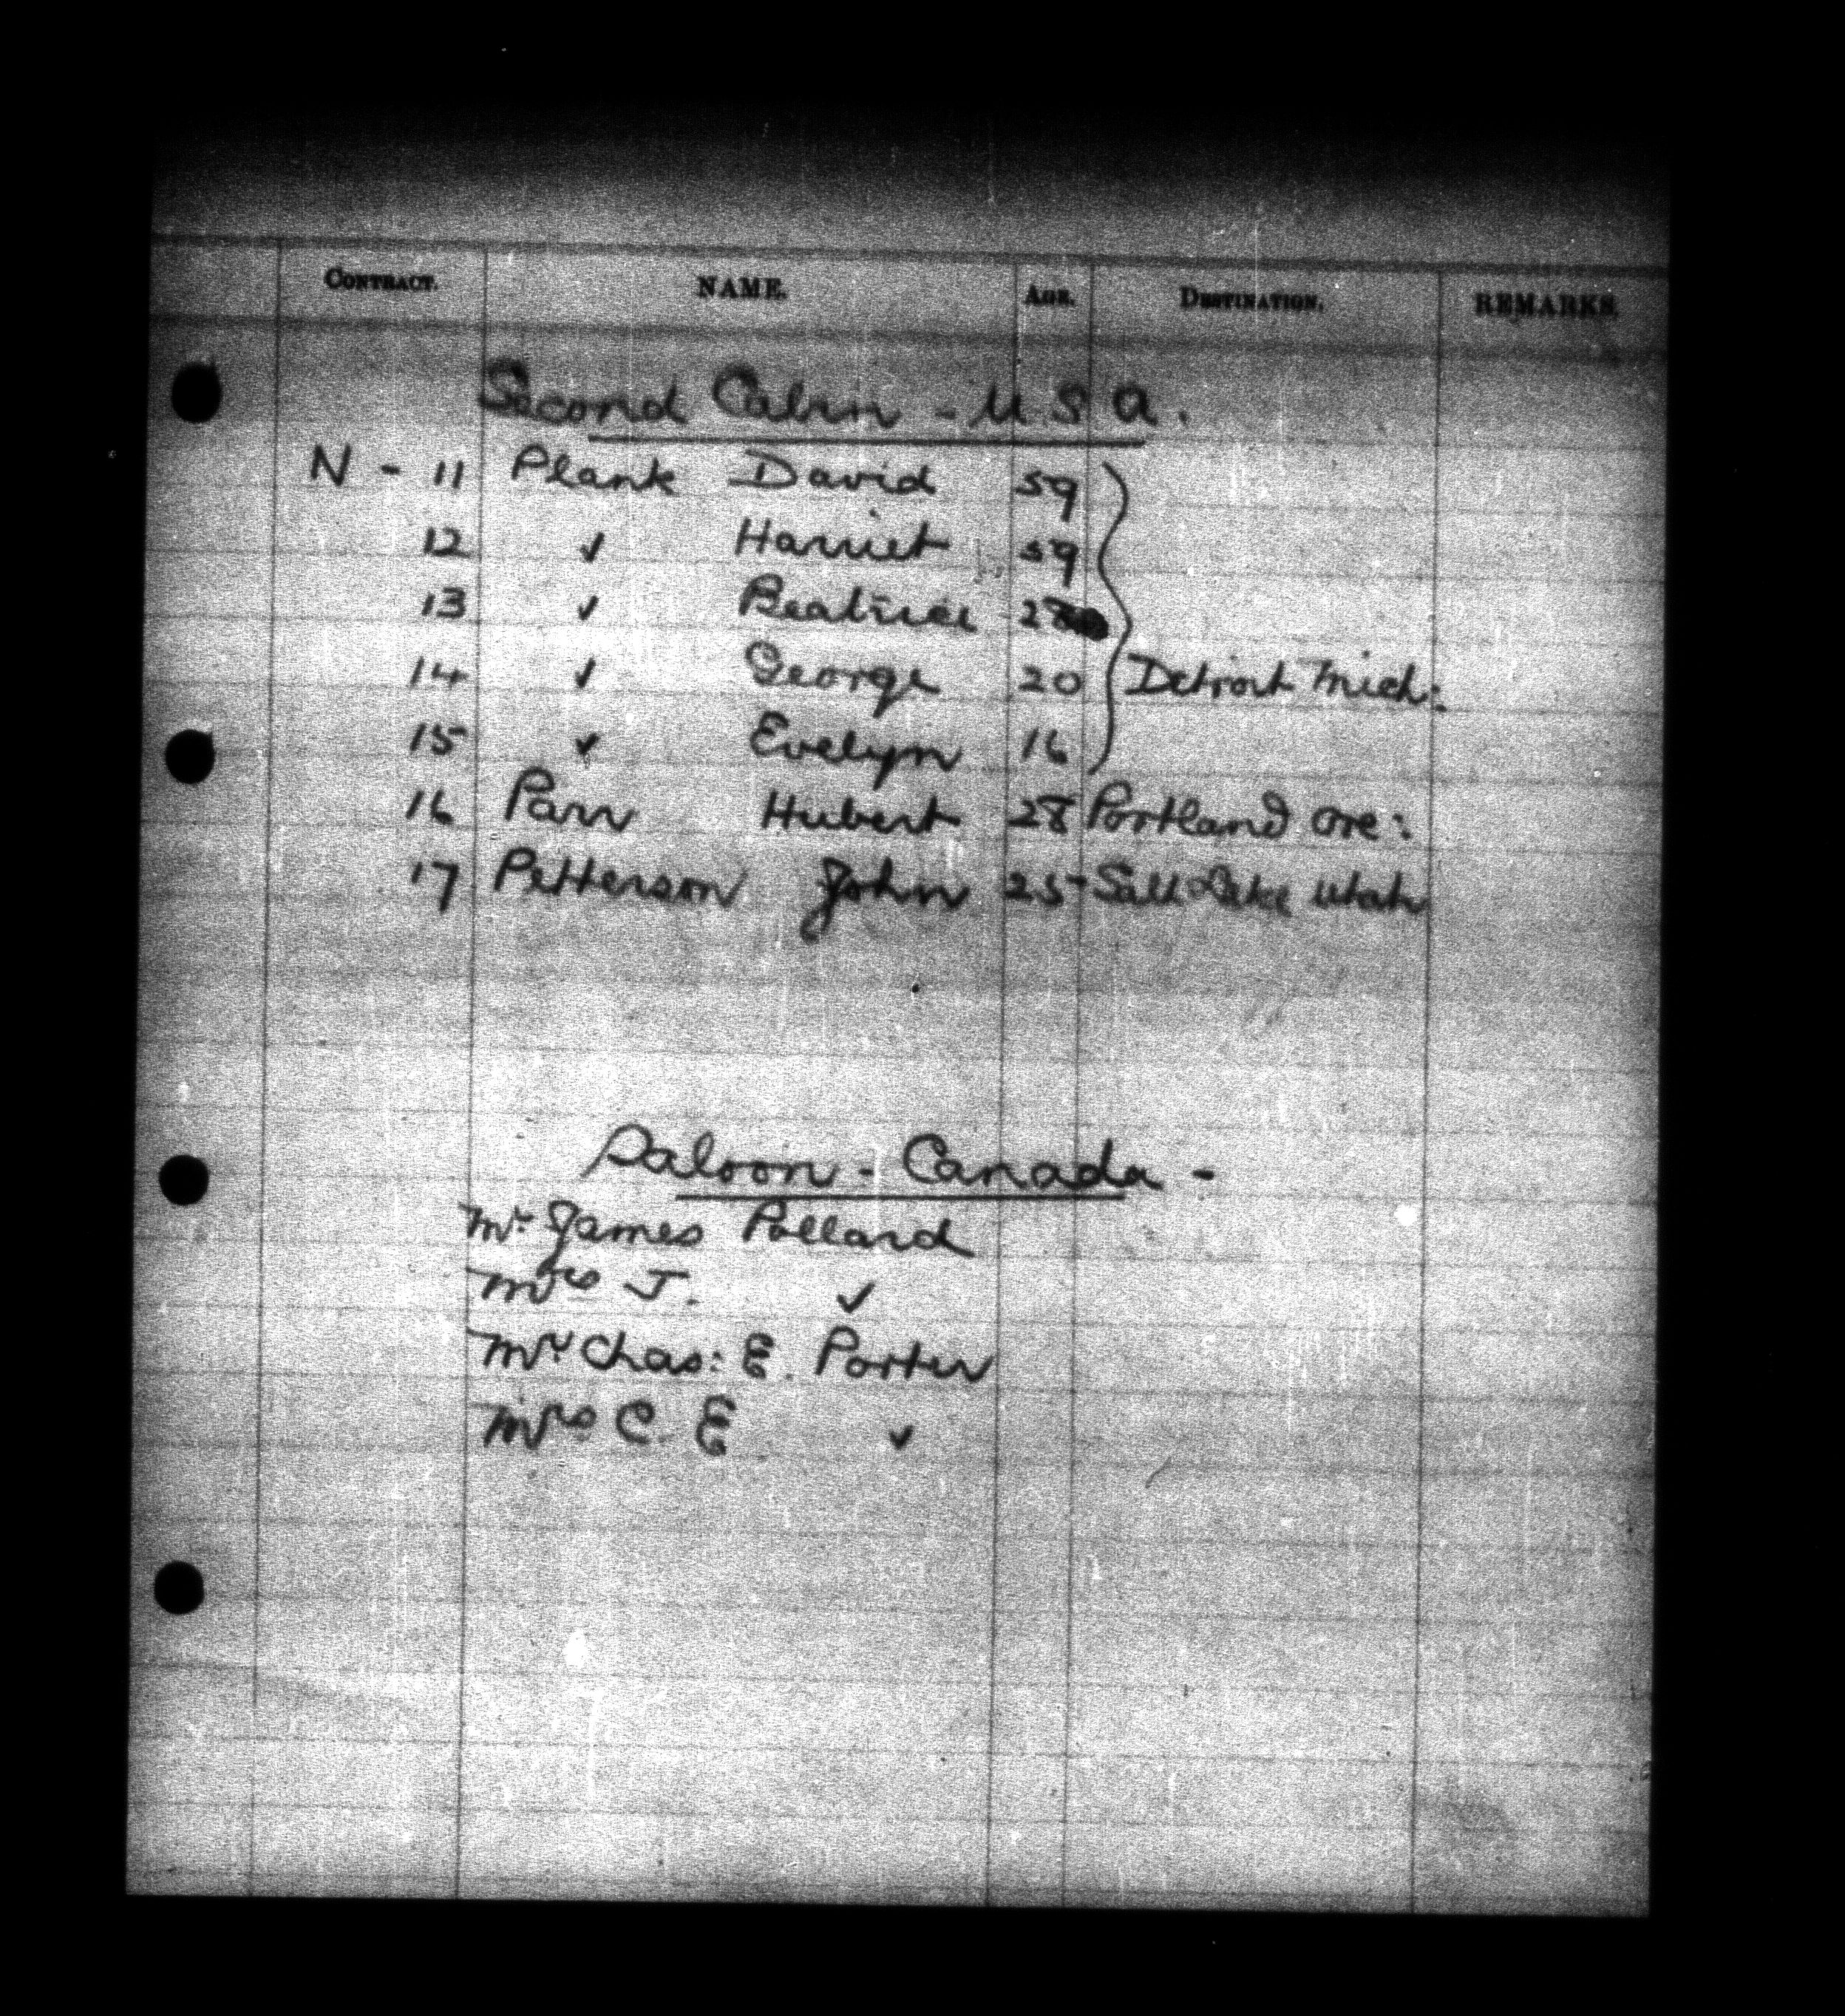 CONTRACT. NAME. AGE. DESTINATION. REMARKS.
Second Cabin - U.S.A.
N - 11 Plank David 59
12 ✓ Harriet 59
13 ✓ Beatrice 28
14 ✓ George 20 Detroit Mich:
15 ✓ Evelyn 16
16 Parr Hubert 28 Portland Ore:
17 Petterson John 25 Salt Lake Utah
Saloon - Canada -
Mr James Pollard
Mrs J. ✓
Mr Chas: E. Porter
Mrs C. E ✓